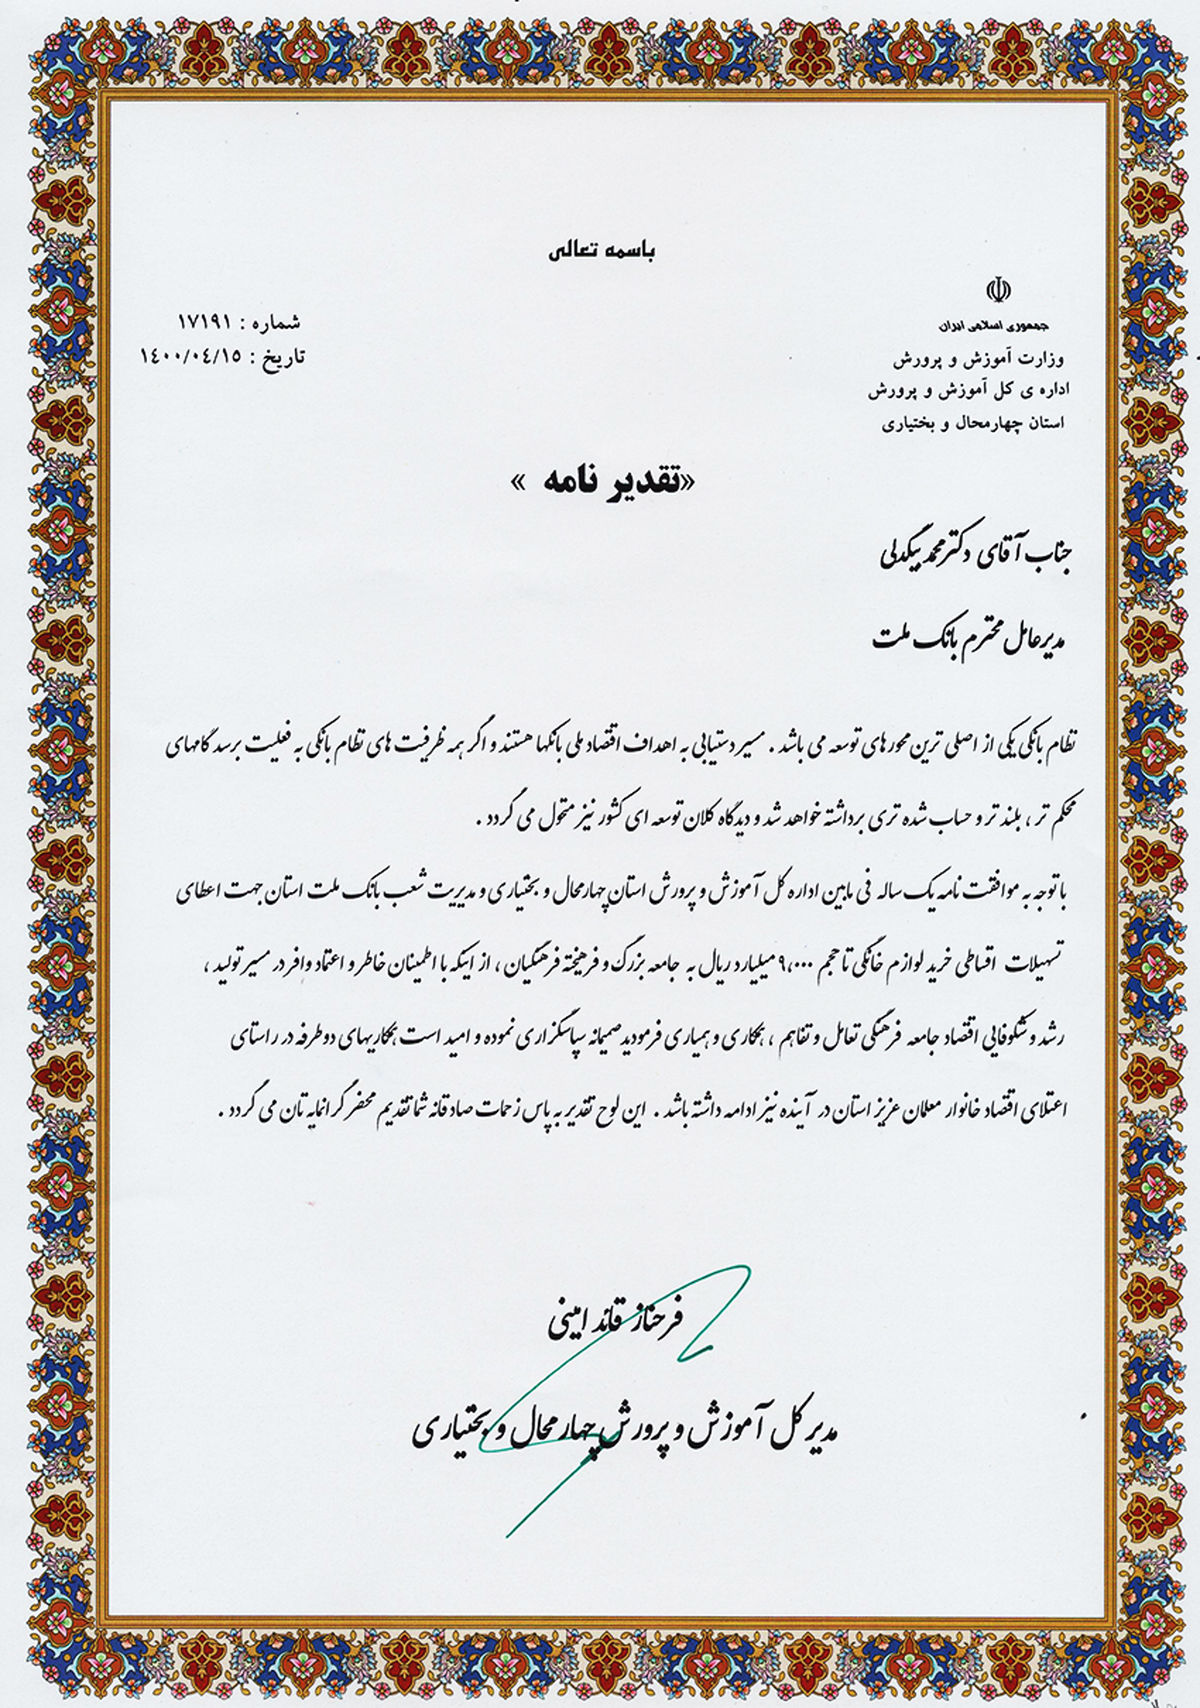 باسمه تعالی
جمهوری اسلامی ایران
وزارت آموزش و پرورش
اداره ی کل آموزش و پرورش
استان چهارمحال و بختیاری
شماره : ۱۷۱۹۱
تاریخ : ۱٤۰۰/۰٤/۱۵
«تقدیر نامه »
جناب آقای دکتر محمد بیگدلی
مدیرعامل محترم بانک ملت
نظام بانکی یکی از اصلی ترین محورهای توسعه می باشد . مسیر دستیابی به اهداف اقتصاد ملی بانکها هستند و اگر همه ظرفیت های نظام بانکی به فعلیت برسد گامهای
محکم تر ، بلند تر و حساب شده تری برداشته خواهد شد و دیدگاه کلان توسعه ای کشور نیز متحول می گردد .
با توجه به موافقت نامه یک ساله فی مابین اداره کل آموزش و پرورش استان چهارمحال و بختیاری و مدیریت شعب بانک ملت استان جهت اعطای
تسهیلات اقساطی خرید لوازم خانگی تا حجم ۹،۰۰۰ میلیارد ریال به جامعه بزرگ و فرهیخته فرهنگیان ، از اینکه با اطمینان خاطر و اعتماد وافر در مسیر تولید ،
رشد و شکوفایی اقتصاد جامعه فرهنگی تعامل و تفاهم ، همکاری و همیاری فرمودید صمیمانه سپاسگزاری نموده و امید است همکاریهای دوطرفه در راستای
اعتلای اقتصاد خانوار معلمان عزیز استان در آینده نیز ادامه داشته باشد . این لوح تقدیر به پاس زحمات صادقانه شما تقدیم محضر گرانمایه تان می گردد .
فرحناز قائد امینی
مدیرکل آموزش و پرورش چهارمحال و بختیاری